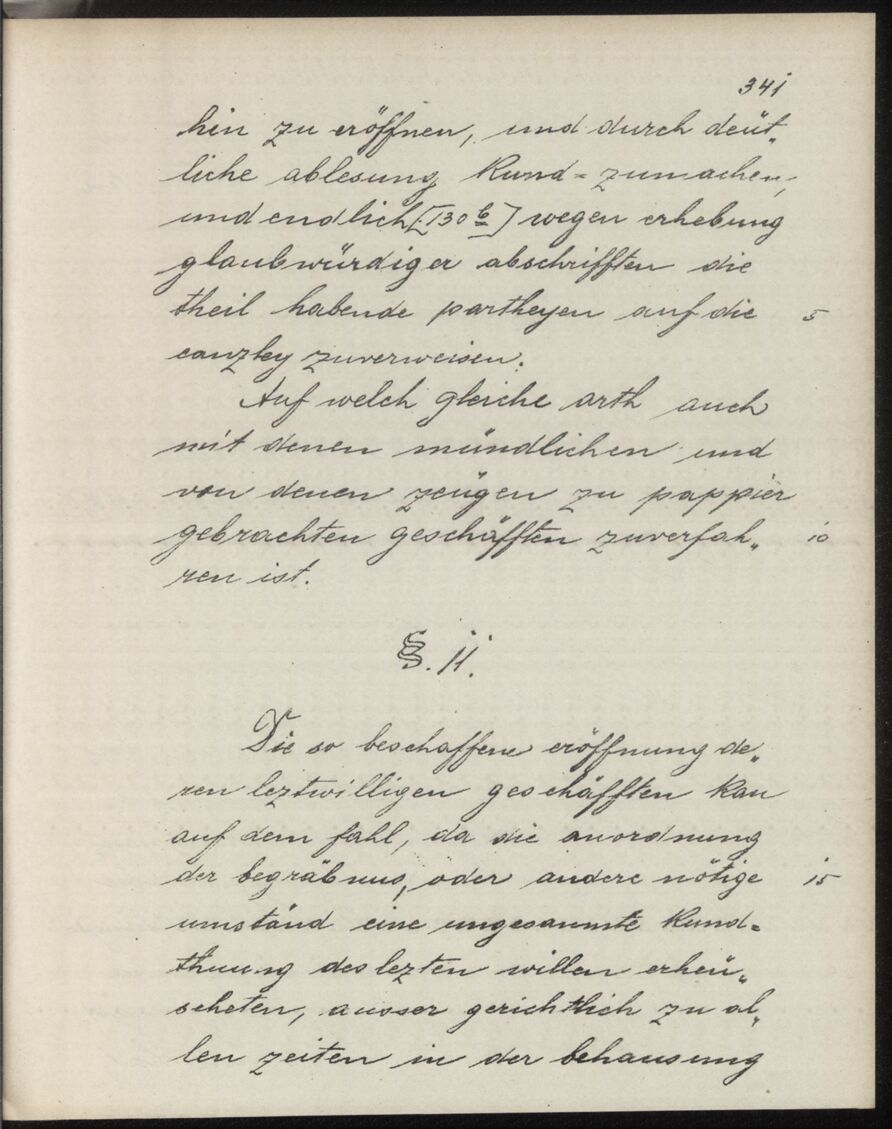 341
hin zu eröffnen, und durch deüt„
liche ablesung kund=zumachen,
und endlich [130 b] wegen erhebung
glaubwürdiger abschrifften die
theil habende partheyen auf die 5
canzley zuverweisen.
Auf welch gleiche arth auch
mit denen mündlichen und
von denen zeügen zu pappier
gebrachten geschäfften zuverfah„ 10
ren ist.
§. 11.
Die so beschaffene eröffnung de„
ren leztwilligen geschäfften kan
auf dem fahl, da die anordnung
der begräbnus, oder andere nötige 15
umständ eine ungesaumte kund=
thuung des lezten willen erheü„
scheten, ausser gerichtlich zu al„
len zeiten in der behausung